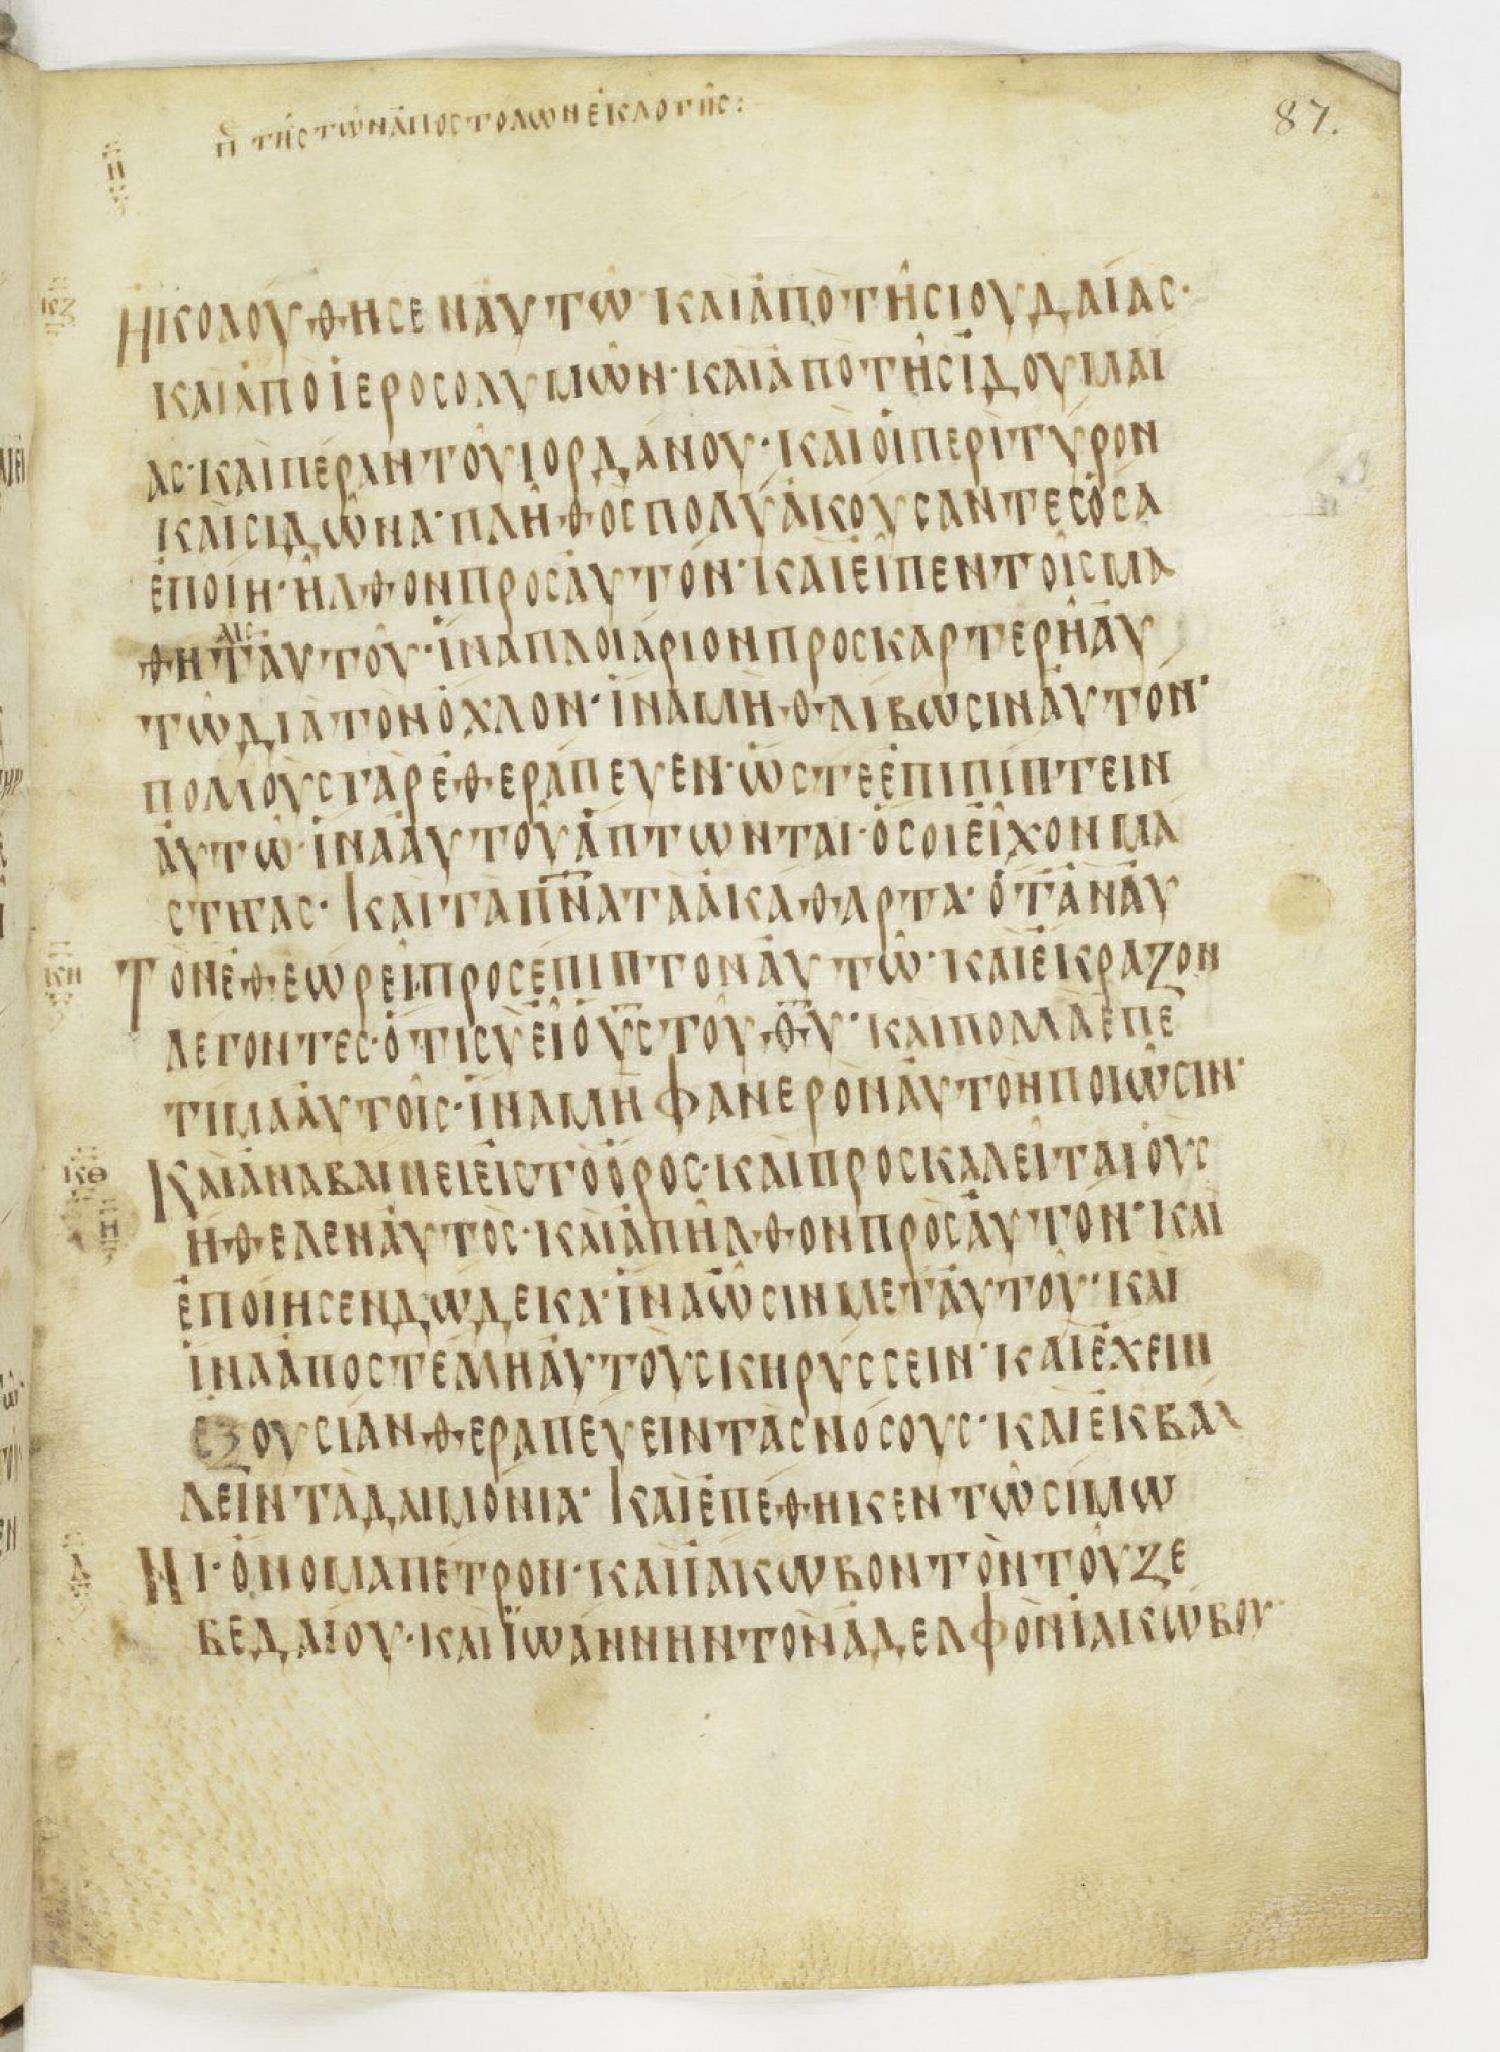 Π ΤΗΣ ΤΩΝ ΑΠΟΣΤΟΛΩΝ ΕΚΛΟΓΗΣ:
87.
Π
ΚΖ
ΗΚΟΛΟΥΘΗΣΕΝ ΑΥΤΩ ΚΑΙ ΑΠΟ ΤΗΣ ΙΟΥΔΑΙΑΣ·
ΚΑΙ ΑΠΟ ΙΕΡΟΣΟΛΥΜΩΝ· ΚΑΙ ΑΠΟ ΤΗΣ ΙΔΟΥΜΑΙ
ΑΣ· ΚΑΙ ΠΕΡΑΝ ΤΟΥ ΙΟΡΔΑΝΟΥ· ΚΑΙ ΟΙ ΠΕΡΙ ΤΥΡΟΝ
ΚΑΙ ΣΙΔΩΝΑ· ΠΛΗΘΟΣ ΠΟΛΥ ΑΚΟΥΣΑΝΤΕΣ ΟΣΑ
ΕΠΟΙΗ· ΗΛΘΟΝ ΠΡΟΣ ΑΥΤΟΝ· ΚΑΙ ΕΙΠΕΝ ΤΟΙΣ ΜΑ
ΘΗΤΑΙΣ ΑΥΤΟΥ· ΙΝΑ ΠΛΟΙΑΡΙΟΝ ΠΡΟΣΚΑΡΤΕΡΗ ΑΥ
ΤΩ ΔΙΑ ΤΟΝ ΟΧΛΟΝ· ΙΝΑ ΜΗ ΘΛΙΒΩΣΙΝ ΑΥΤΟΝ·
ΠΟΛΛΟΥΣ ΓΑΡ ΕΘΕΡΑΠΕΥΕΝ· ΩΣΤΕ ΕΠΙΠΙΠΤΕΙΝ
ΑΥΤΩ· ΙΝΑ ΑΥΤΟΥ ΑΠΤΩΝΤΑΙ· ΟΣΟΙ ΕΙΧΟΝ ΜΑ
ΣΤΙΓΑΣ· ΚΑΙ ΤΑ ΠΝΑΤΑ ΑΚΑΘΑΡΤΑ· ΟΤΑΝ ΑΥ
ΚΗ
ΤΟΝ ΕΘΕΩΡΕΙ· ΠΡΟΣΕΠΙΠΤΟΝ ΑΥΤΩ· ΚΑΙ ΕΚΡΑΖΟΝ
ΛΕΓΟΝΤΕΣ· ΟΤΙ ΣΥ ΕΙ Ο ΥΣ ΤΟΥ ΘΥ· ΚΑΙ ΠΟΛΛΑ ΕΠΕ
ΤΙΜΑ ΑΥΤΟΙΣ· ΙΝΑ ΜΗ ΦΑΝΕΡΟΝ ΑΥΤΟΝ ΠΟΙΩΣΙΝ·
ΚΘ
ΚΑΙ ΑΝΑΒΑΙΝΕΙ ΕΙΣ ΤΟ ΟΡΟΣ· ΚΑΙ ΠΡΟΣΚΑΛΕΙΤΑΙ ΟΥΣ
Η
ΗΘΕΛΕΝ ΑΥΤΟΣ· ΚΑΙ ΑΠΗΛΘΟΝ ΠΡΟΣ ΑΥΤΟΝ· ΚΑΙ
ΕΠΟΙΗΣΕΝ ΔΩΔΕΚΑ· ΙΝΑ ΩΣΙΝ ΜΕΤ ΑΥΤΟΥ· ΚΑΙ
ΙΝΑ ΑΠΟΣΤΕΛΛΗ ΑΥΤΟΥΣ ΚΗΡΥΣΣΕΙΝ· ΚΑΙ ΕΧΕΙΝ
ΕΞΟΥΣΙΑΝ ΘΕΡΑΠΕΥΕΙΝ ΤΑΣ ΝΟΣΟΥΣ· ΚΑΙ ΕΚΒΑΛ
ΛΕΙΝ ΤΑ ΔΑΙΜΟΝΙΑ· ΚΑΙ ΕΠΕΘΗΚΕΝ ΤΩ ΣΙΜΩ
Λ
ΝΙ· ΟΝΟΜΑ ΠΕΤΡΟΝ· ΚΑΙ ΙΑΚΩΒΟΝ ΤΟΝ ΤΟΥ ΖΕ
ΒΕΔΑΙΟΥ· ΚΑΙ ΙΩΑΝΝΗΝ ΤΟΝ ΑΔΕΛΦΟΝ ΙΑΚΩΒΟΥ